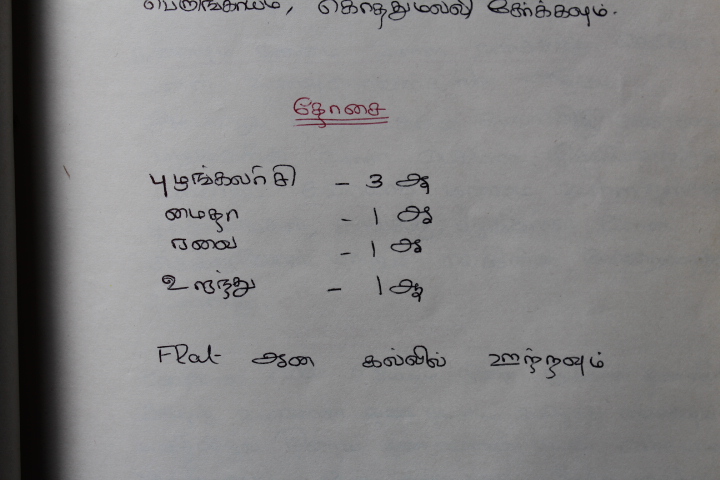 பெருங்காயம், கொத்துமல்லி சேர்க்கவும்.
தோசை
புழுங்கலரிசி - 3 ஆ
மைதா - 1 ஆ
ரவை - 1 ஆ
உளுந்து - 1 ஆ
Flat ஆன கல்லில் ஊற்றவும்